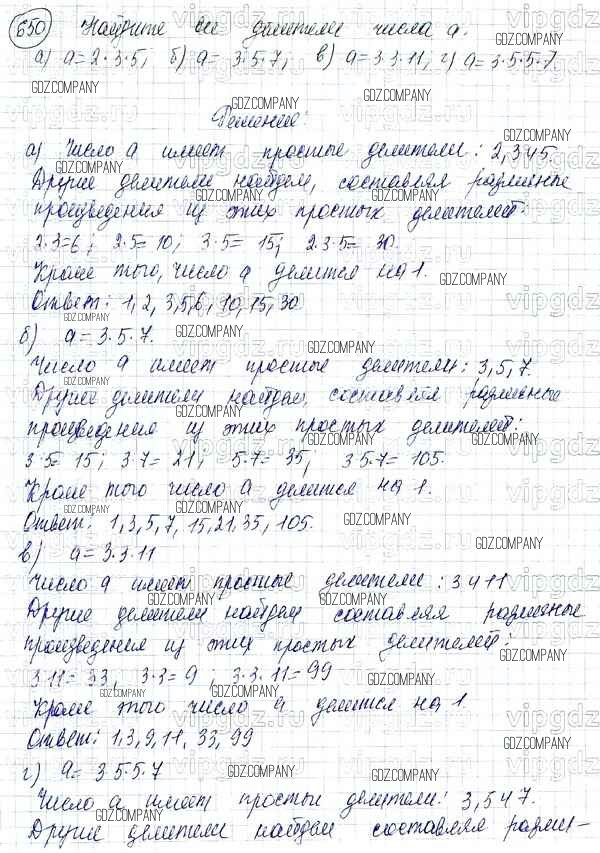 650 Найдите все делители числа a.
а) a=2·3·5; б) a=3·5·7, в) a=3·3·11, г) a=3·5·5·7
Решение:
а) Число a имеет простые делители: 2,3 и 5.
Другие делители найдем, составляя различные
произведения из этих простых делителей:
2·3=6; 2·5=10; 3·5=15; 2·3·5=30.
Кроме того, число a делится на 1.
Ответ: 1,2,3,5,6,10,15,30
б) a=3·5·7.
Число a имеет простые делители: 3,5,7.
Другие делители найдем, составляя различные
произведения из этих простых делителей:
3·5=15; 3·7=21; 5·7=35; 3·5·7=105.
Кроме того число a делится на 1.
Ответ: 1,3,5,7,15,21,35,105.
в) a=3·3·11
Число a имеет простые делители: 3 и 11
Другие делители найдем составляя различные
произведения из этих простых делителей:
3·11=33, 3·3=9; 3·3·11=99
Кроме того число a делится на 1.
Ответ: 1,3,9,11,33,99
г) a=3·5·5·7
Число a имеет простые делители: 3,5 и 7.
Другие делители найдем составляя разли-